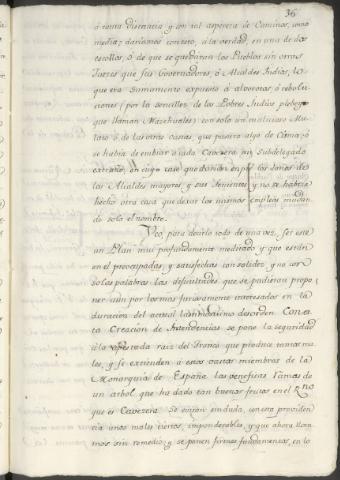 36
á tanta distancia y con tal aspereza de Caminos, como
media; dariamos contra, á la verdad, en una de dos
escollos, ó de que se quedarian los Pueblos sin otros
Juezes que sus Governadores, ó Alcaldes Indios, lo
que era sumamente expuesto á alborotos, ó rebeli-
ciones (por la sencillez de los Pobres Indios plebeyos
que llaman Mazehuales) con solo un malicioso Mu-
lato ó de las otras castas, que pasara algo de Coma; ó
se havia de embiar á cada Cavecera un Subdelegado
extraño, en cuyo caso quedarian en pie los daños de
los Alcaldes mayores y sus Tenientes y no se habria
hecho otra cosa que dexar los mismos empleos mudan-
do solo el nombre.
Veo, para decirlo todo de una vez, ser este
un Plan muy profundamente meditado y que estan
en él preocupadas, y satisfechas con solidez, y no con
solas palabras las dificultades que se pudieran propo-
ner aun por los mas furiosamente interesados en la
duracion del actual lastimosisimo desorden. Con es-
ta Creacion de Intendencias se pone la seguridad
á la raiz del Tronco que produce tantos ma-
les, y se extienden á estos vastos miembros de la
Monarquia de España las beneficas ramas de
un arbol, que ha dado tan buenos frutos en el Rno
que es Cavecera. Se evitan sin duda, con esta providen-
cia unos males ciertos, imponderables, y que ahora llora-
mos sin remedio; y se ponen firmes fundamentos, en lo